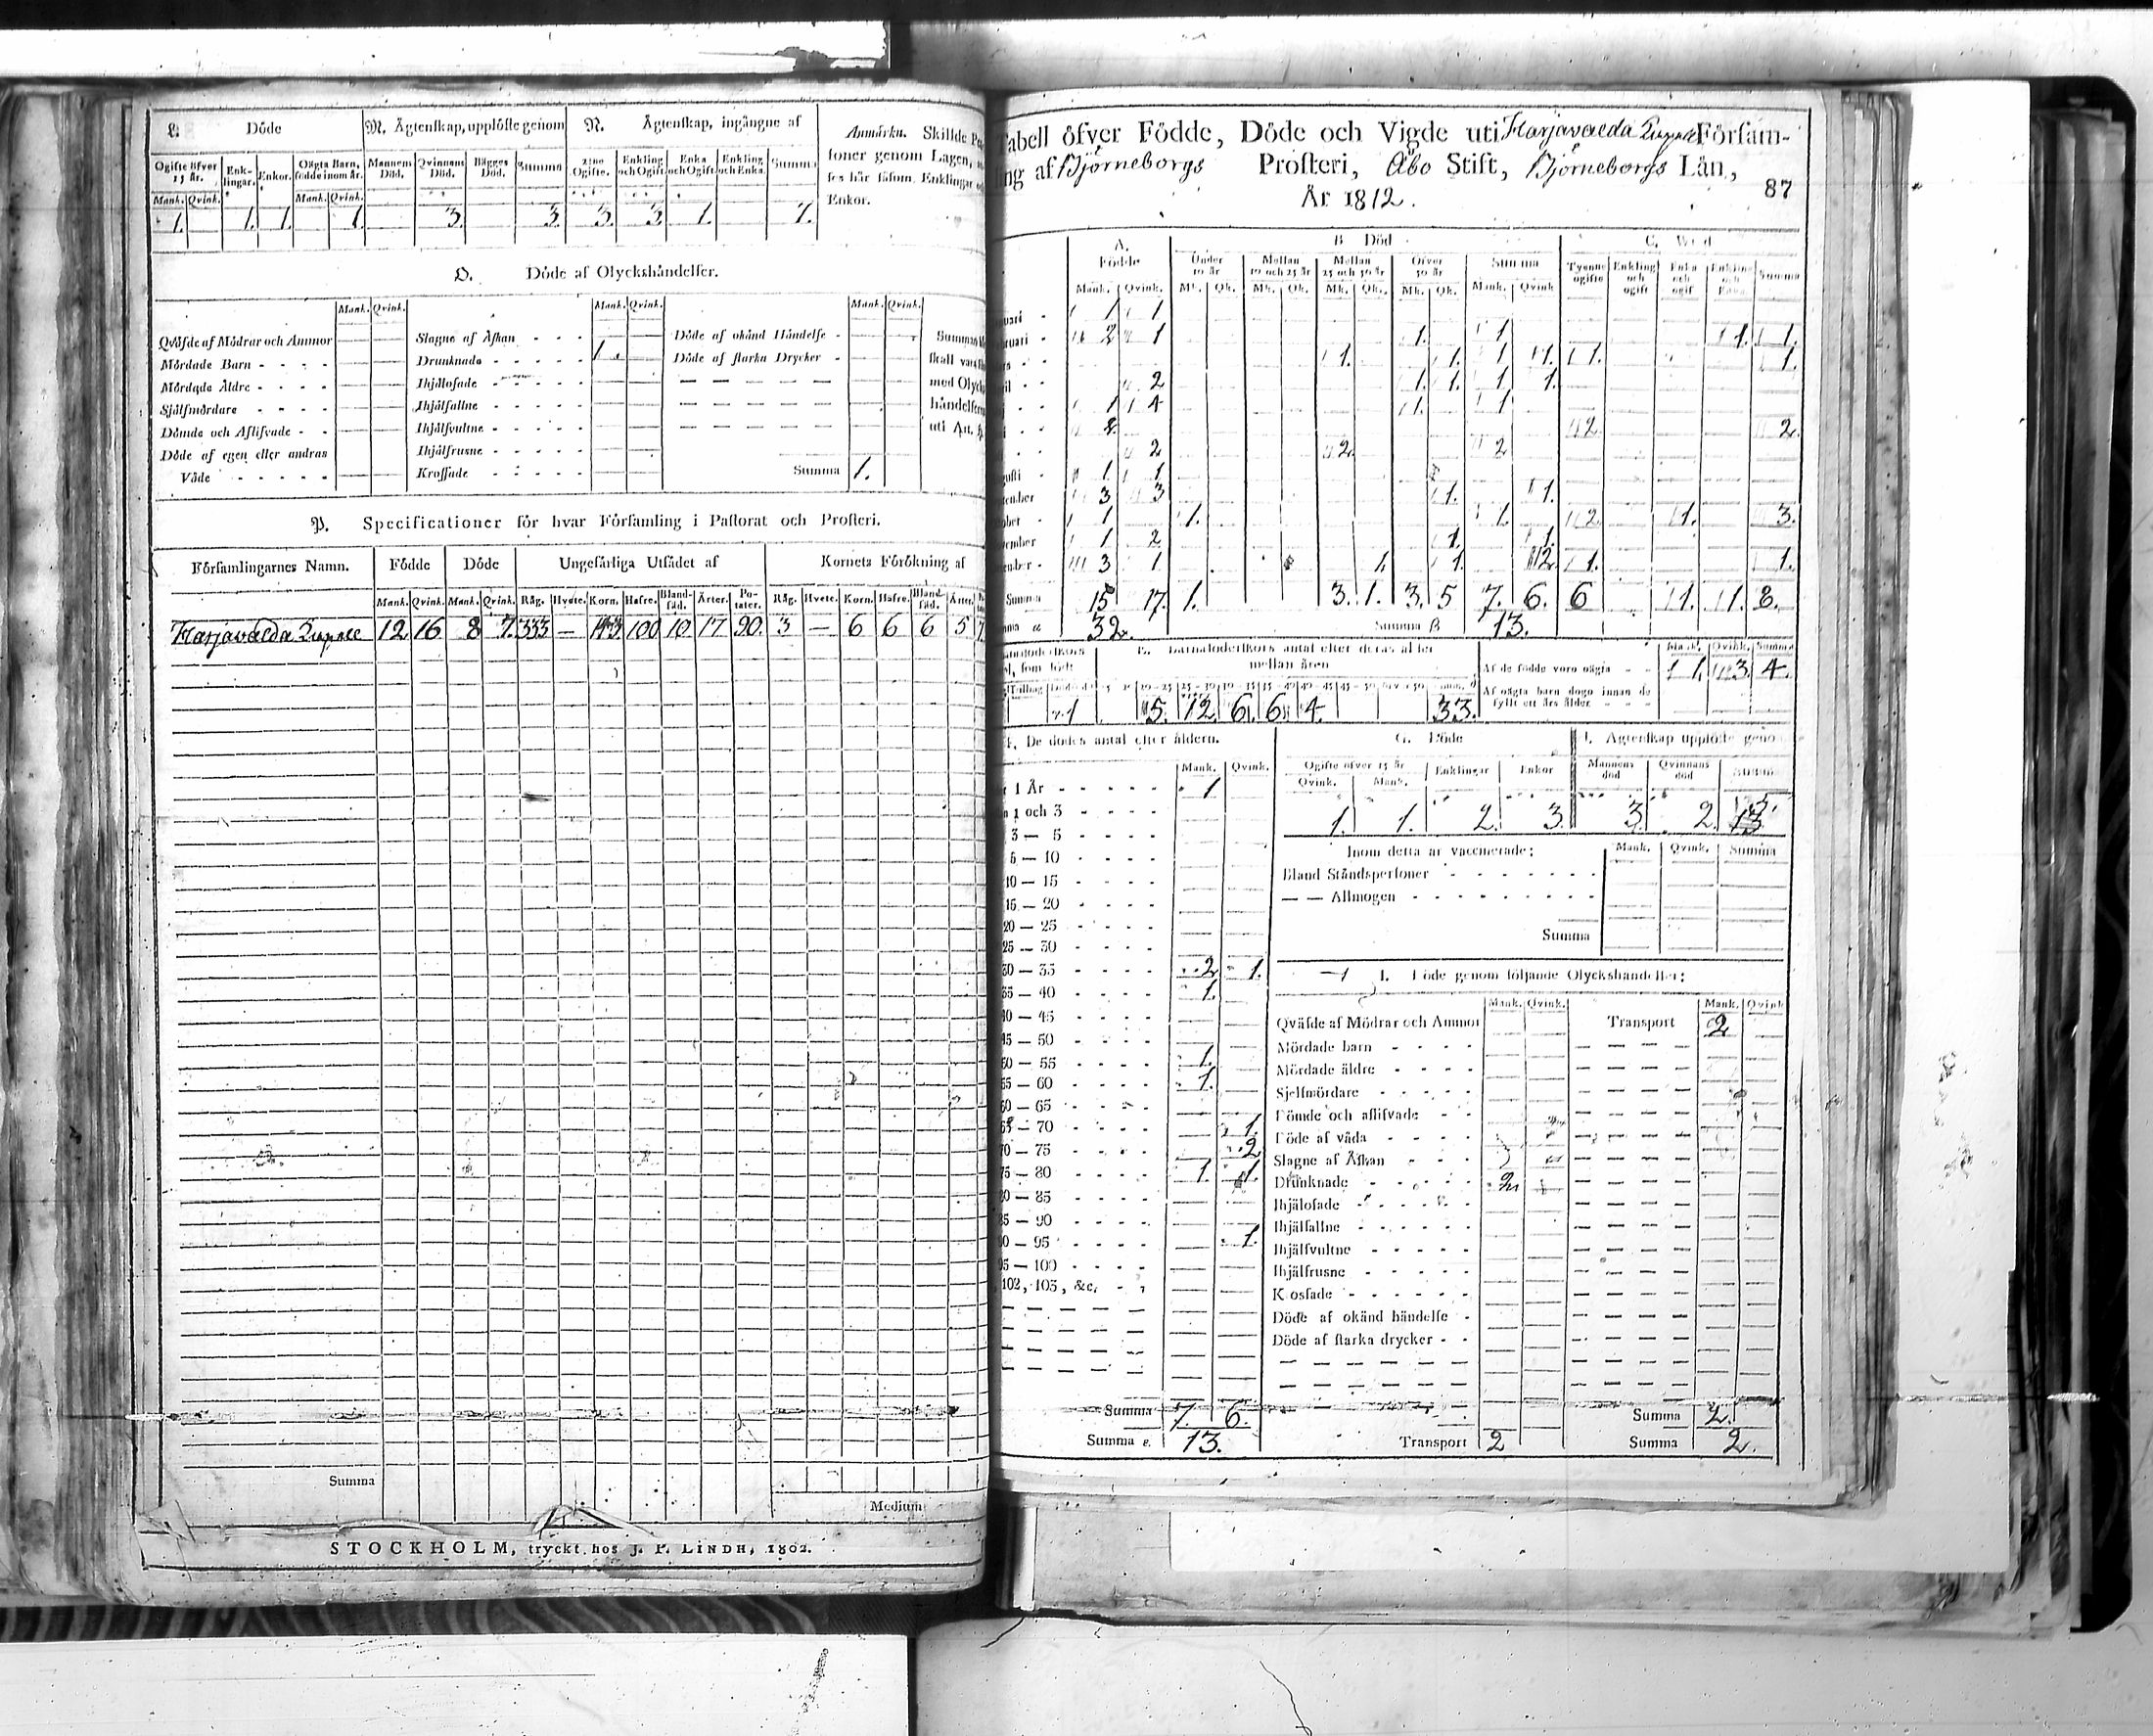 L. Döde
M. Ägtenskap, upplöste genom
N. Ägtenskap, ingångne af
Anmärkn. Skillde Per
soner genom Lagen,
Enkor.
Ogifte öfver 15 år. Enk-lingar. Enkor. Oägta Barn, födde inom år. Mannens Död. Qvinnans Död. Bägges Död. Summa 2:ne Ogifte. Enkling och Ogift Enka och Ogift Enkling och Enka. Summa
Mank. Qvink. Mank. Qvink.
1. 1. 1. 1. 3. 3. 3. 3. 1. 7.
O. Döde af Olyckshändelser.
Mank. Qvink. Mank. Qvink. Mank. Qvink.
Qväfde af Mödrar och Ammor
Mördade Barn - - - -
Mördade Äldre - - - -
Sjålfmördare - - - -
Dömde och Aflifvade - -
Döde af egen eller andras
Våde - - - - -
Slagne af Åskan - - -
Drunknade - - - - - 1.
Ihjälosade - - - - -
Ihjälfallne - - - - -
Ihjälsvultne - - - - -
Ihjälfrusne - - - - -
Krossade - - - - -
Döde af okänd Händelse -
Döde af starka Drycker -
Summa 1.
skall vara
med Olyck
händelser
P. Specificationer för hvar Församling i Pastorat och Prosteri.
Församlingarnes Namn. Födde Döde Ungefärliga Utsådet af Kornets Förökning af
Mank. Qvink. Mank. Qvink. Råg. Hvete. Korn. Hafre. Bland-säd. Ärter. Po-tater. Råg. Hvete. Korn. Hafre. Bland-säd. Ärter.
Harjavalda 12 16 8 7. 333 — 143 100 10 17 90. 3 — 6 6 6 5
Summa
Medium
STOCKHOLM, tryckt hos J. P. LINDH, 1802.
Tabell öfver Födde, Döde och Vigde uti Harjavalda Församling
af Björneborgs Prosteri, Åbo Stift, Björneborgs Län,
År 1812.
87
A. Födde
B Död
Under 10 år Mellan 10 och 25 år Mellan 25 och 50 år Öfver 50 år Summa Tvenne ogifte Enkling och ogift Enka och ogift Enkling och Enka Summa
Mank. Qvink. Mk. Qk. Mk. Qk. Mk. Qk. Mk. Qk. Mank. Qvink
1 1
2 1 1. 1 1. 1.
1. 1. 1 1. 1. 1.
2 1. 1. 1 1.
1 4 1. 1
2. 2. 2.
2 2. 2
1 1
3 3 1. 1.
1 1. 1. 2 1. 3.
1 2 1. 1.
3 1 1. 1. 2 1. 1.
Summa 15 17. 1. 3. 1. 3. 5 7. 6. 6 1. 1. 8.
32. Summa B 13.
E. Barnaföderskors antal efter deras ålder
mellan åren
Af de födde voro oägta - - 1. 3. 4.
Af oägta barn dogo innan de
fyllt ett års ålder. - - -
Mank. Qvink. Summa
1 5. 12. 6. 6. 4. 33.
F. De dödes antal efter åldern.
Mank. Qvink.
1 År - - - - - 1
1 och 3 - - - -
3 — 5 - - - -
5 — 10 - - - -
10 — 15 - - - -
15 — 20 - - - -
20 — 25 - - - -
25 — 30 - - - -
30 — 35 - - - - 2 1.
35 — 40 - - - - 1.
40 — 45 - - - -
45 — 50 - - - -
50 — 55 - - - - 1.
55 — 60 - - - - 1.
60 — 65 - - - -
65 — 70 - - - - 1.
70 — 75 - - - - 2
75 — 80 - - - - 1. 1.
80 — 85 - - - -
85 — 90 - - - -
90 — 95 - - - - 1.
95 — 100 - - - -
102, 103, &c.
Summa 7. 6.
Summa e. 13.
G. Döde
Ogifte öfver 15 år Enklingar Enkor
Qvink. Mank.
1. 1. 2. 3.
Ägtenskap upplöste genom
Mannens död Qvinnans död Summa
3. 2.
Inom detta år vaccinerade; Mank. Qvink. Summa
Bland Ståndspersoner - - - - - - -
— — Allmogen - - - - - - - -
Summa
I. Döde genom följande Olyckshändelser;
Mank. Qvink. Mank. Qvink
Qväfde af Mödrar och Ammor
Mördade barn - - - -
Mördade äldre - - - -
Sjelfmördare - - - -
Dömde och aflifvade - -
Döde af våda - - - -
Slagne af Åskan - - -
Drunknade - - - - 2.
Ihjälosade - - - - -
Ihjälfallne - - - - -
Ihjälsvultne - - - - -
Ihjälfrusne - - - - -
Krossade - - - - - -
Döde af okänd händelse -
Döde af starka drycker - -
Transport 2
Transport 2
Summa 2.
Summa 2.